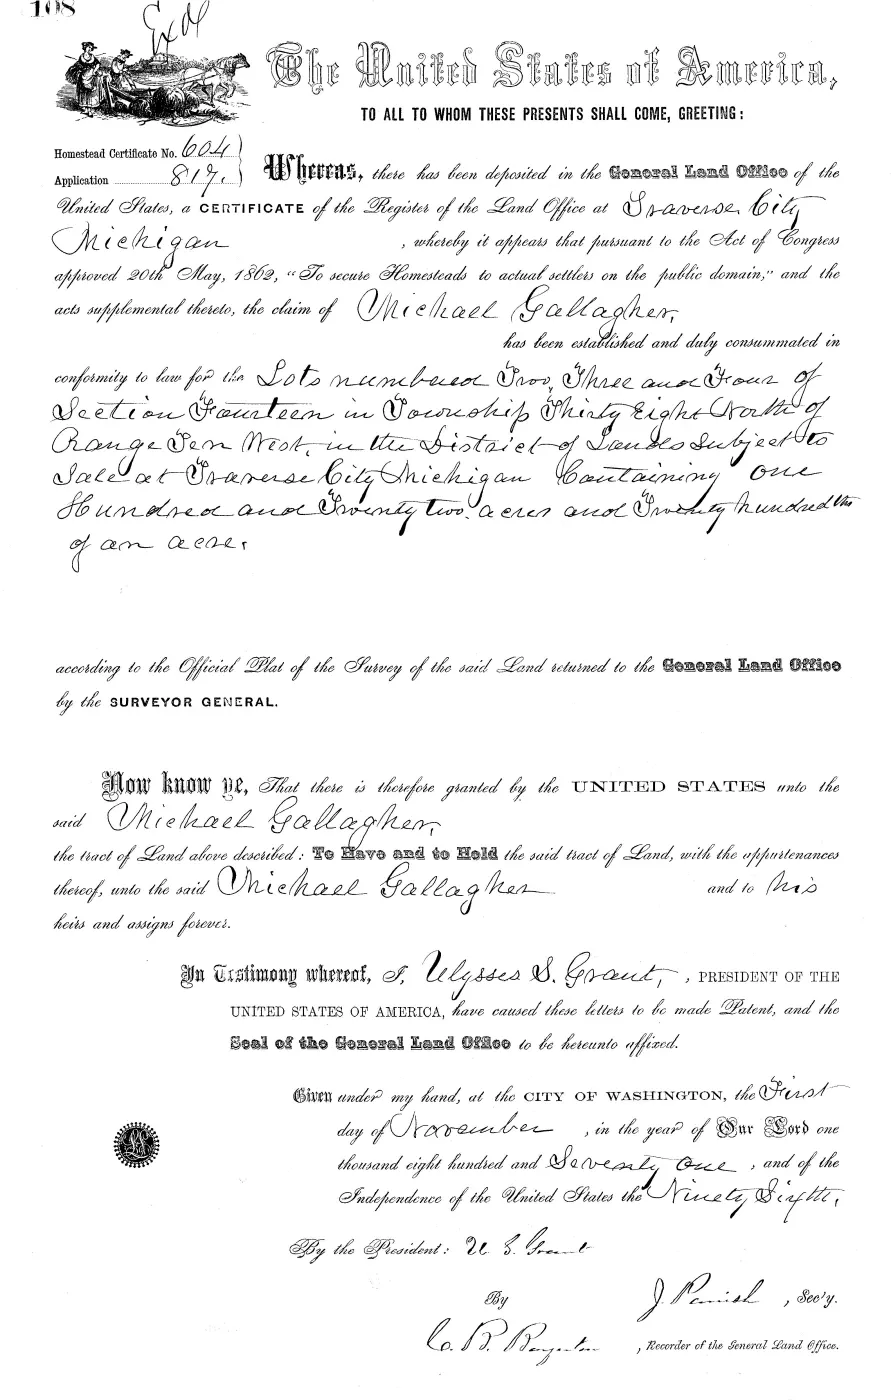 108
Exd
The United States of America,
TO ALL TO WHOM THESE PRESENTS SHALL COME, GREETING:
Homestead Certificate No. 604
Application 817.
Whereas, there has been deposited in the General Land Office of the
United States, a CERTIFICATE of the Register of the Land Office at Traverse City
Michigan , whereby it appears that pursuant to the Act of Congress
approved 20th May, 1862, "To secure Homesteads to actual settlers on the public domain," and the
acts supplemental thereto, the claim of Michael Gallagher,
has been established and duly consummated in
conformity to law for the Lots numbered Two, Three and Four of
Section Fourteen in Township Thirty Eight North of
Range Ten West, in the District of Lands Subject to
Sale at Traverse City Michigan Containing one
Hundred and Twenty two acres and Twenty hundredths
of an acre.
according to the Official Plat of the Survey of the said Land returned to the General Land Office
by the SURVEYOR GENERAL.
Now know ye, That there is therefore granted by the UNITED STATES unto the
said Michael Gallagher,
the tract of Land above described: To Have and to Hold the said tract of Land, with the appurtenances
thereof, unto the said Michael Gallagher and to his
heirs and assigns forever.
In Testimony whereof, I, Ulysses S. Grant, , PRESIDENT OF THE
UNITED STATES OF AMERICA, have caused these letters to be made Patent, and the
Seal of the General Land Office to be hereunto affixed.
Given under my hand, at the CITY OF WASHINGTON, the First
day of November , in the year of Our Lord one
thousand eight hundred and Seventy one , and of the
Independence of the United States the Ninety Sixth,
By the President: U S Grant
By J. Parrish , Sec'y.
C. B. Boynton , Recorder of the General Land Office.